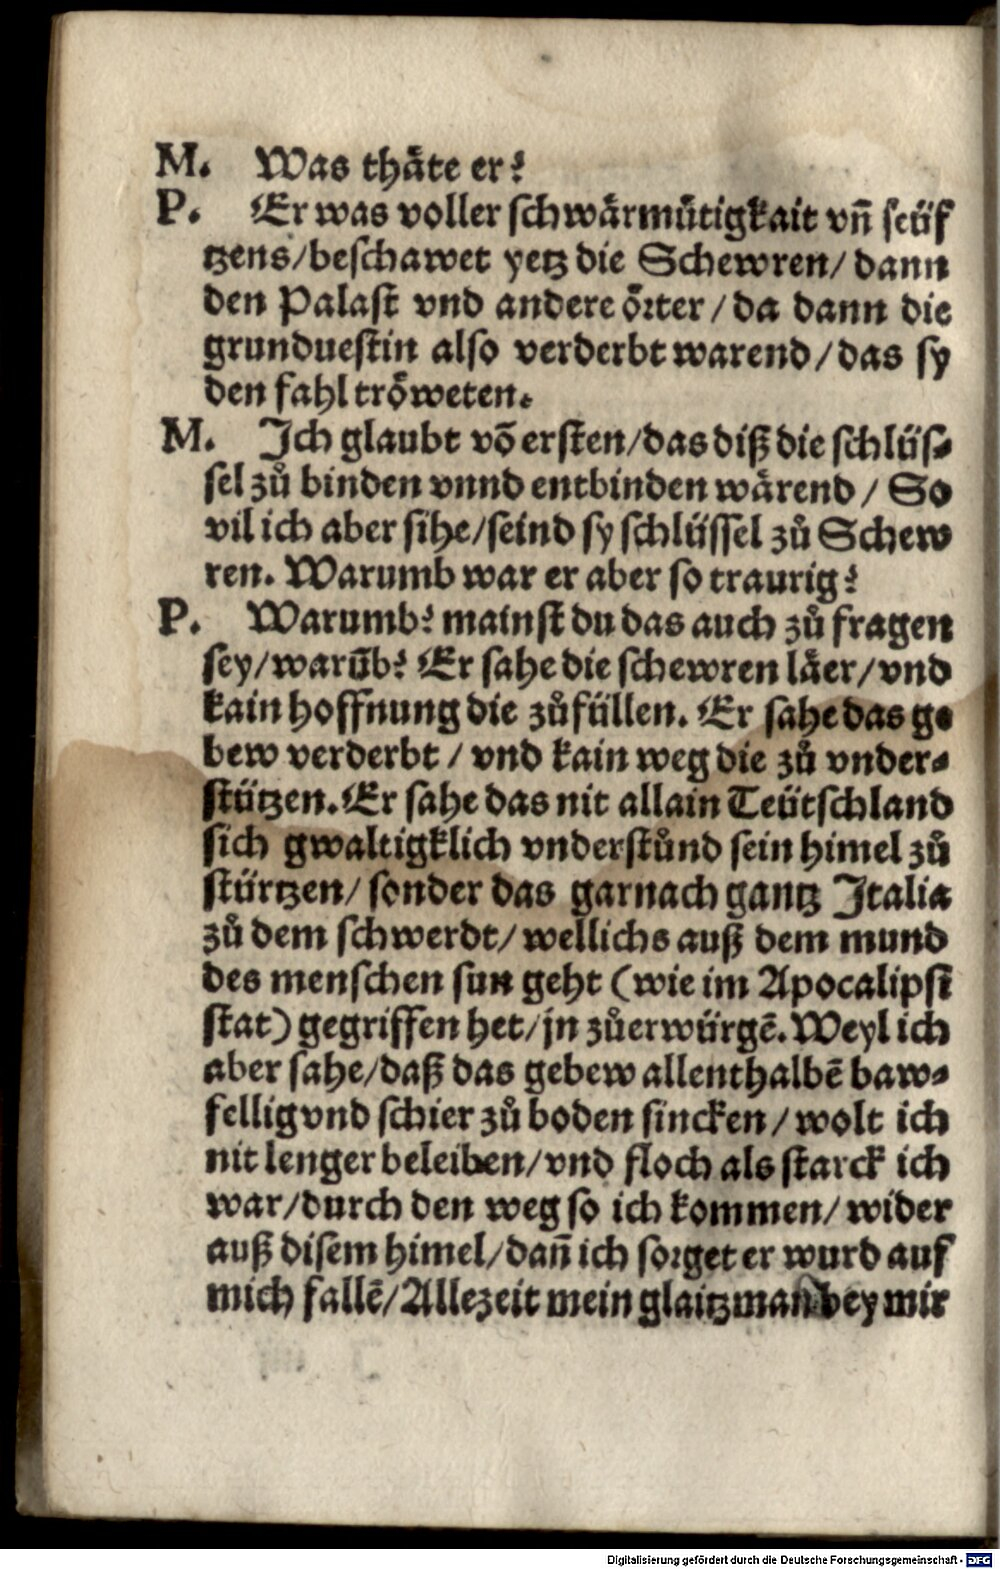 M. Was thäte er?
P. Er was voller schwärmütigkait vñ seüf
tzens/beschawet yetz die Schewren/ dann
den Palast vnd andere örter / da dann die
grunduestin also verderbt warend/das sy
den fahl tröweten.
M. Ich glaubt võ ersten/das diß die schlüs⸗
sel zů binden vnnd entbinden wärend / So
vil ich aber sihe/seind sy schlüssel zů Schew
ren. Warumb war er aber so traurig?
P. Warumb? mainst du das auch zů fragen
sey/warüb? Er sahe die schewren läer/vnd
kain hoffnung die zů füllen. Er sahe das ge
bew verderbt / vnd kain weg die zů vnder⸗
stützen. Er sahe das nit allain Teütschland
sich gwaltigklich vnderstůnd sein himel zů
stürtzen/ sonder das garnach gantz Italia
zů dem schwerdt/ wellichs auß dem mund
des menschen sun geht (wie im Apocalipsi
stat) gegriffen het/jn zůerwürgẽ. Weyl ich
aber sahe/daß das gebew allenthalbẽ baw⸗
fellig vnd schier zů boden sincken / wolt ich
nit lenger beleiben/vnd floch als starck ich
war/durch den weg so ich kommen/ wider
auß disem himel/dañ ich sorget er wurd auf
mich fallẽ/Allezeit mein glaitzman bey mir
Digitalisierung gefördert durch die Deutsche Forschungsgemeinschaft - DFG